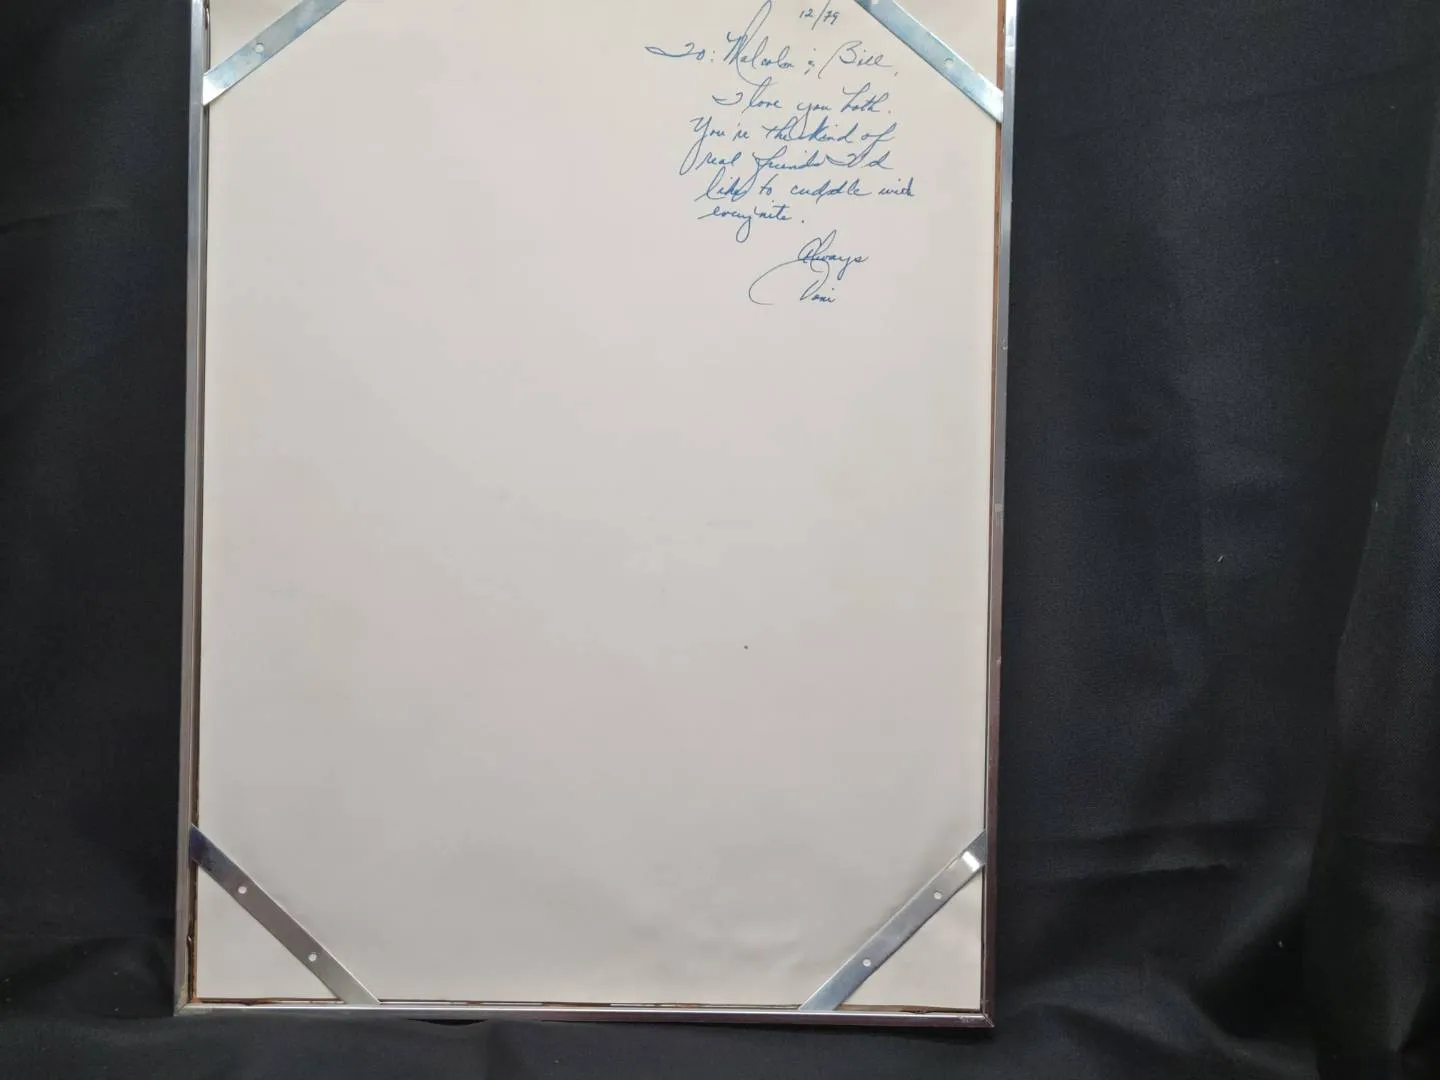 12/79
To: Malcolm & Bill,
I love you both.
You're the kind of
real friends I'd
like to cuddle with
every nite.
Always